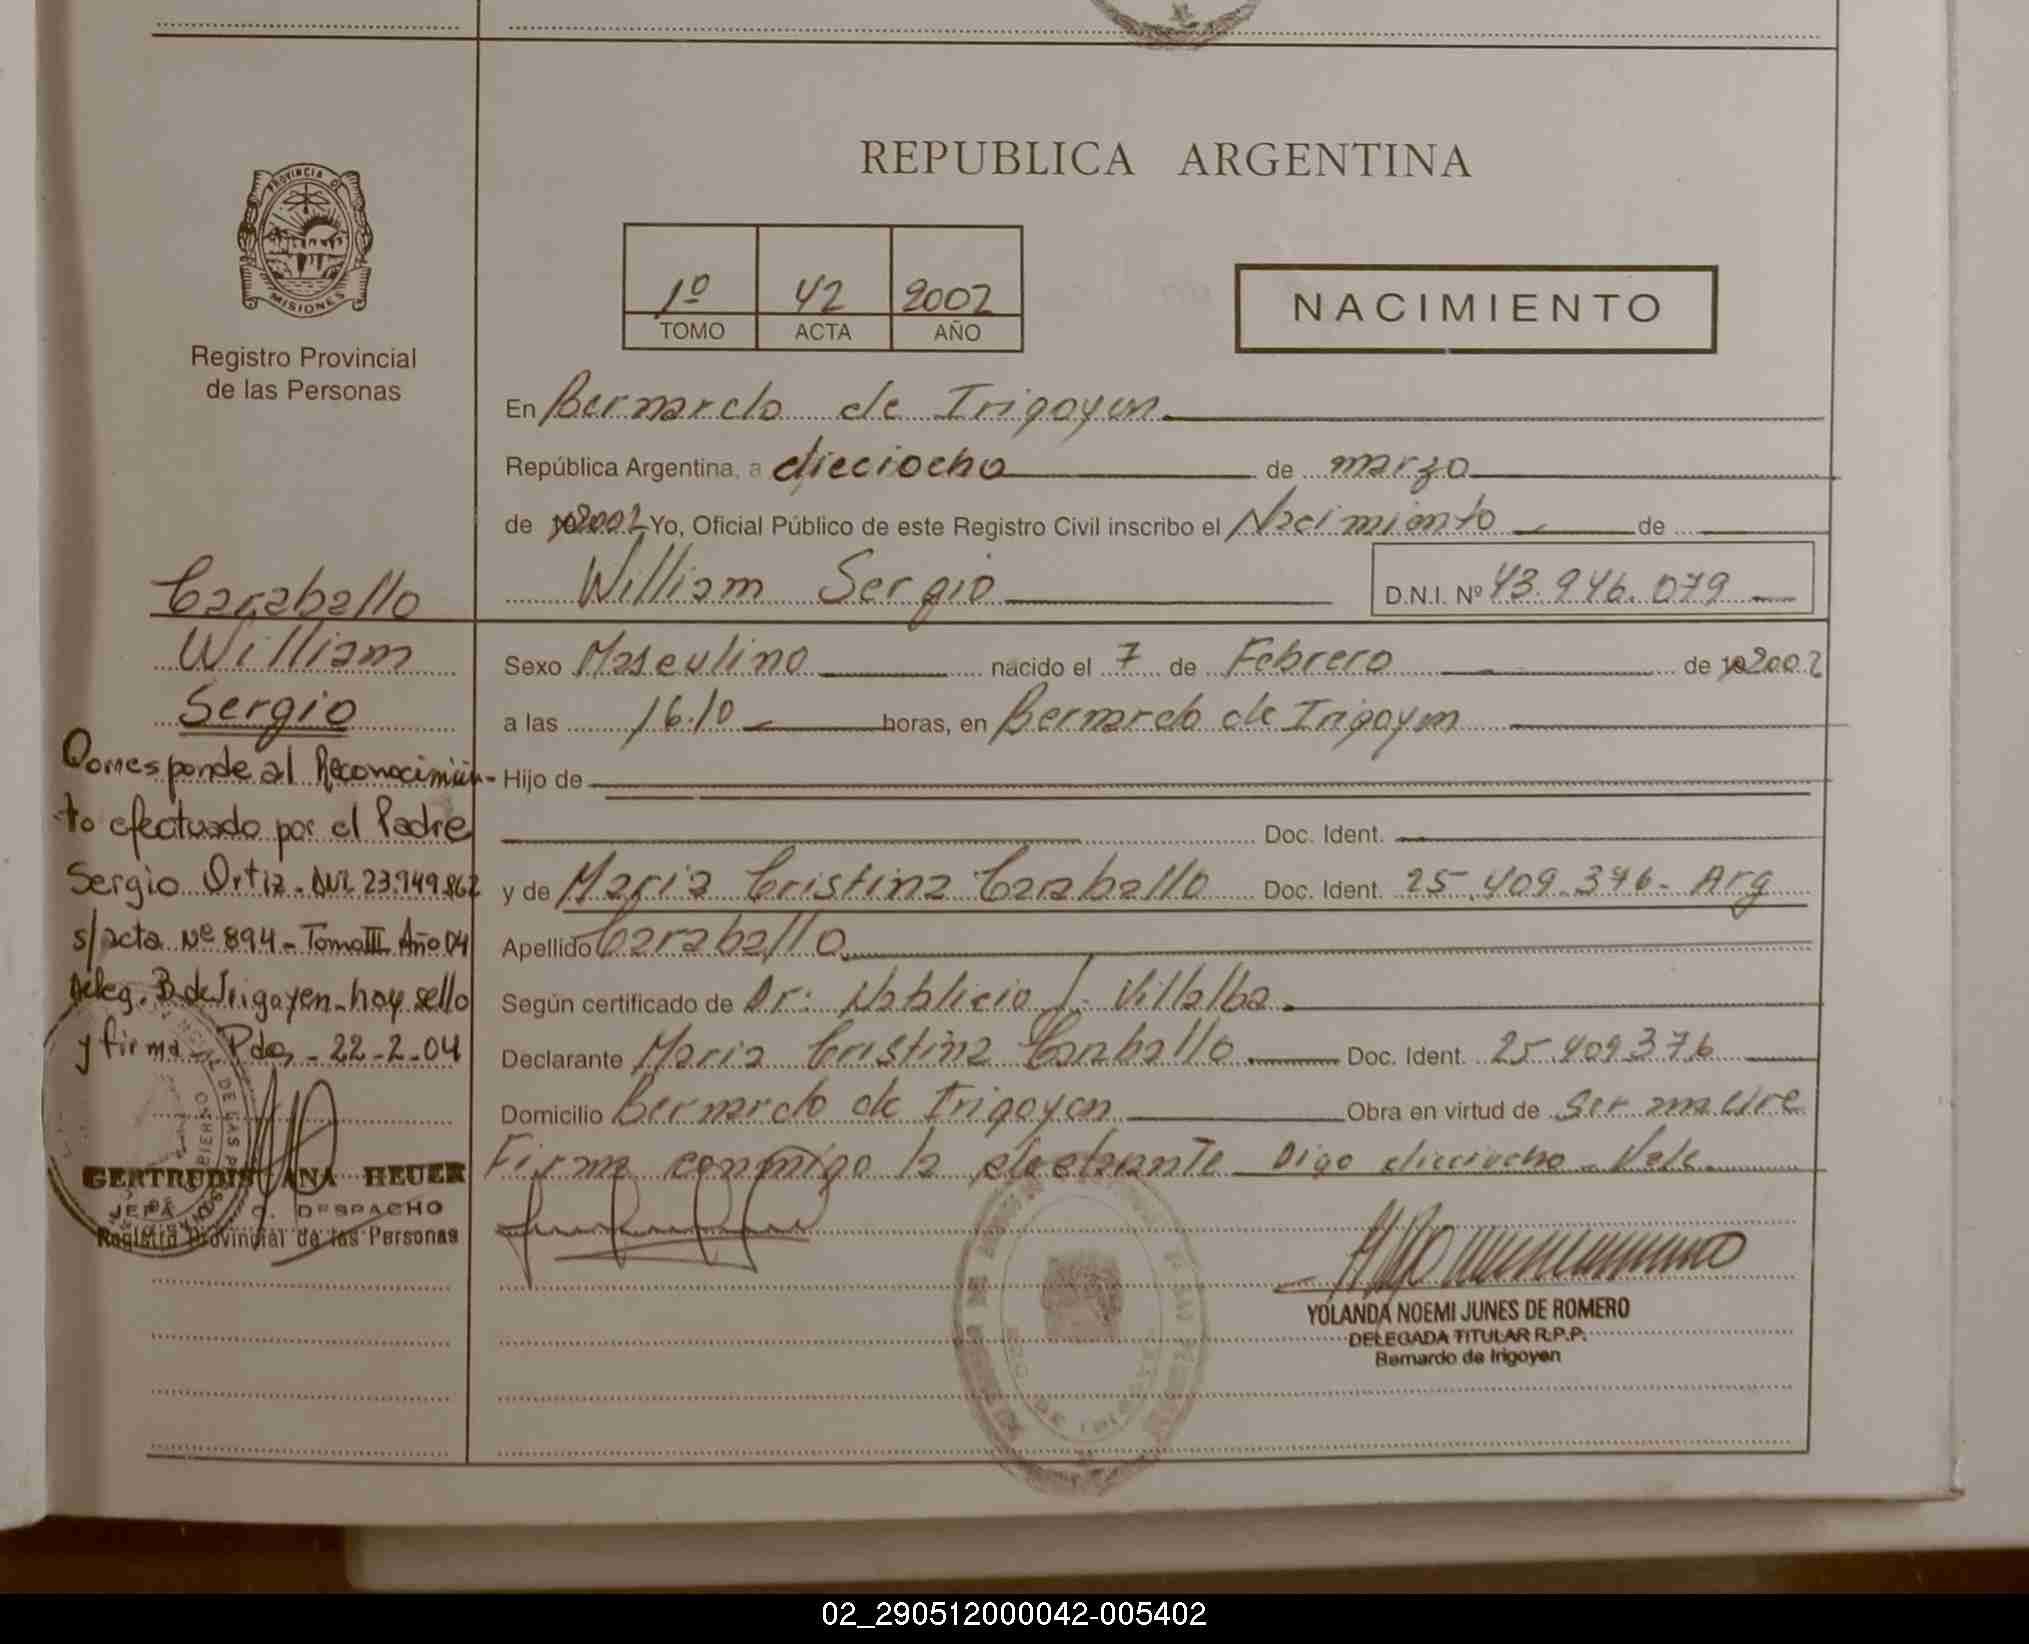 REPUBLICA ARGENTINA
PROVINCIA DE
MISIONES
Registro Provincial
de las Personas
1º 42 2002
TOMO ACTA AÑO
NACIMIENTO
En Bernardo de Irigoyen
República Argentina, a dieciocho de marzo
de 2002 Yo, Oficial Público de este Registro Civil inscribo el Nacimiento de
William Sergio D.N.I. Nº 43.946.079
Sexo Masculino nacido el 7 de Febrero de 2002
a las 16.10 horas, en Bernardo de Irigoyen
Hijo de
Doc. Ident.
y de Maria Cristina Caraballo Doc. Ident. 25.409.376- Arg
Apellido Caraballo
Según certificado de Dr: Natalicio J. Villalba
Declarante Maria Cristina Caraballo Doc. Ident. 25.409.376
Domicilio Bernardo de Irigoyen Obra en virtud de ser madre
Firma conmigo la declarante Digo dieciocho - Vale
YOLANDA NOEMI JUNES DE ROMERO
DELEGADA TITULAR R.P.P.
Bernardo de Irigoyen
Caraballo
William
Sergio
Corresponde al Reconocimien-
to efectuado por el Padre
Sergio Ortiz - DNI. 23.949.862
s/acta Nº 894 - Tomo III Año 04
Deleg. B. de Irigoyen - hoy sello
y firma - Pdas - 22-2-04
GERTRUDIS ANA HEUER
JEFA D. DESPACHO
Registro Provincial de las Personas
02_290512000042-005402